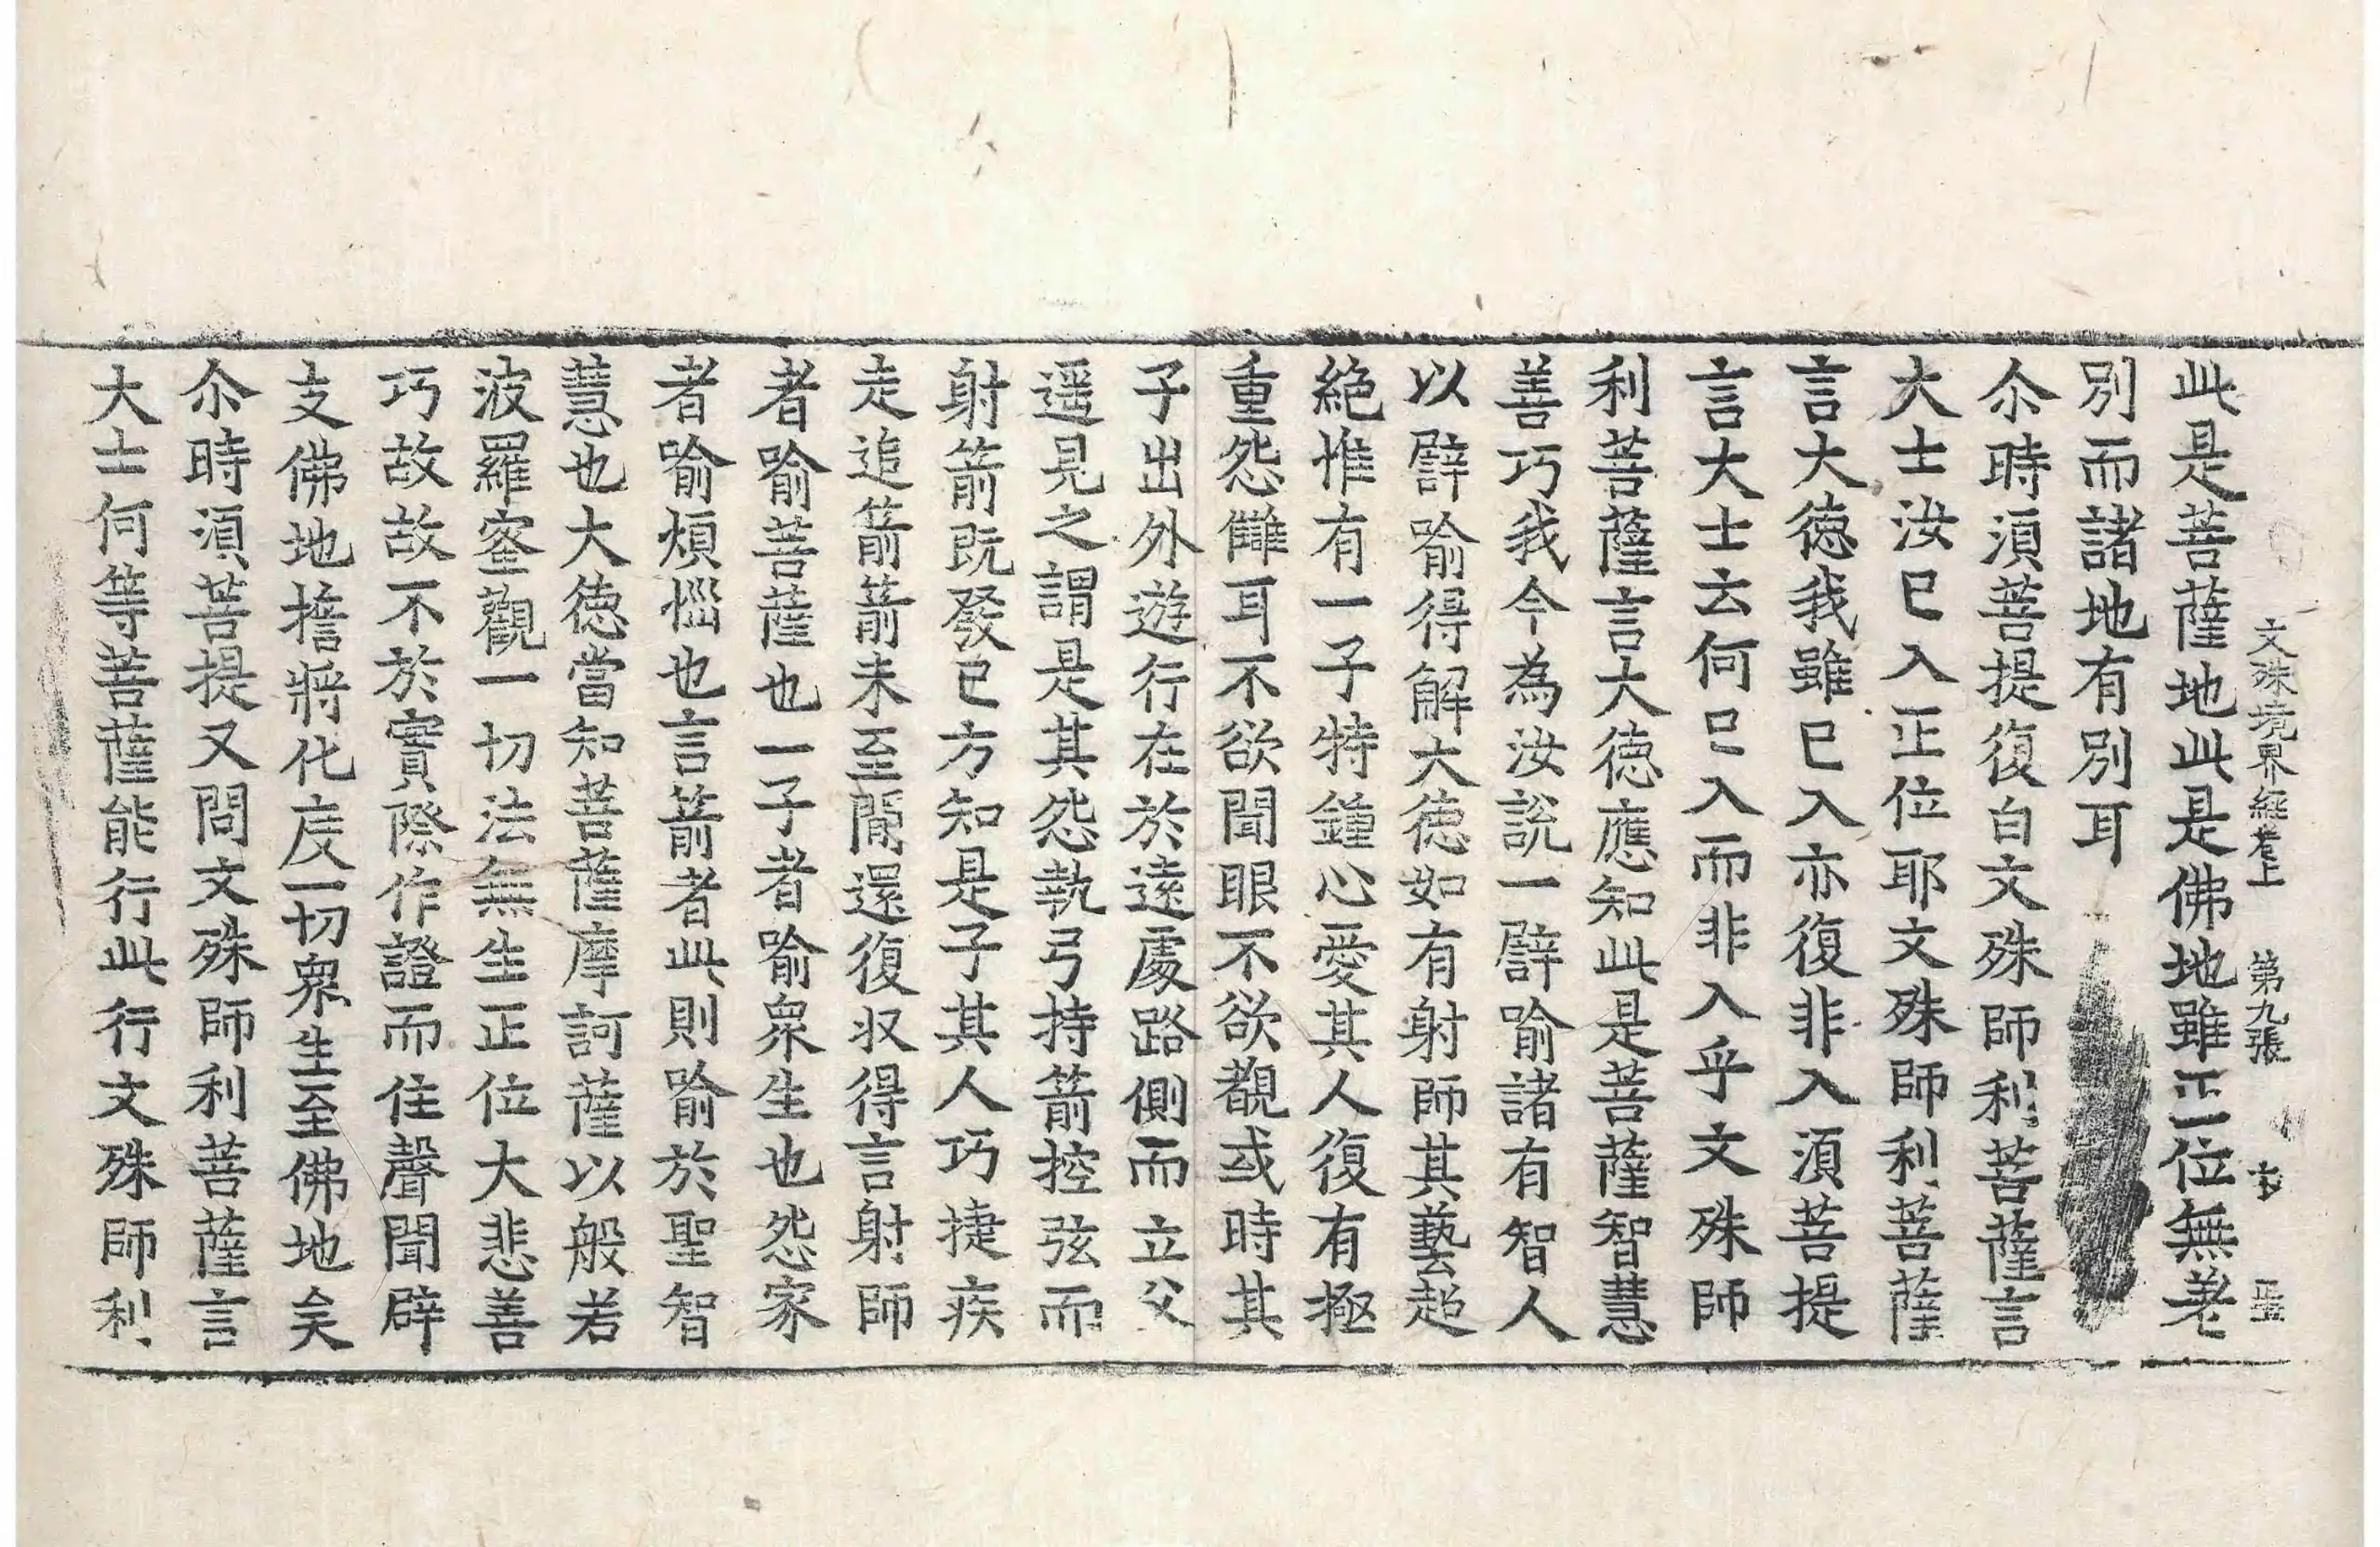 文殊境界經卷上　第九張　𡧳
此是菩薩地此是佛地雖正一位無差
別而諸地有別耳
尒時湏菩提復白文殊師利菩薩言
大士汝已入正位耶文殊師利菩薩
言大德我雖已入亦復非入湏菩提
言大士云何已入而非入乎文殊師
利菩薩言大德應知此是菩薩智慧
善巧我今為汝說一譬喻諸有智人
以譬喻得解大德如有射師其藝超
絶惟有一子特鍾心愛其人復有極
重怨讎耳不欲聞眼不欲覩或時其
子出外遊行在於遠處路側而立父
遥見之謂是其怨執弓持箭控弦而
射箭既發已方知是子其人巧捷疾
走追箭箭未至間還復収得言射師
者喻菩薩也一子者喻衆生也怨家
者喻煩惱也言箭者此則喻於聖智
慧也大德當知菩薩摩訶薩以般若
波羅蜜觀一切法無生正位大悲善
巧故故不於實際作證而住聲聞辟
支佛地擔將化度一切衆生至佛地矣
尒時湏菩提又問文殊師利菩薩言
大士何等菩薩能行此行文殊師利